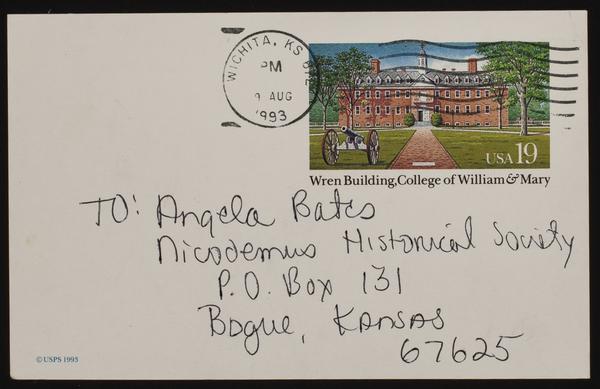 WICHITA, KS 672
PM
9 AUG
1993
USA 19
Wren Building, College of William & Mary
TO: Angela Bates
Nicodemus Historical Society
P.O. Box 131
Bogue, KANSAS
67625
© USPS 1993